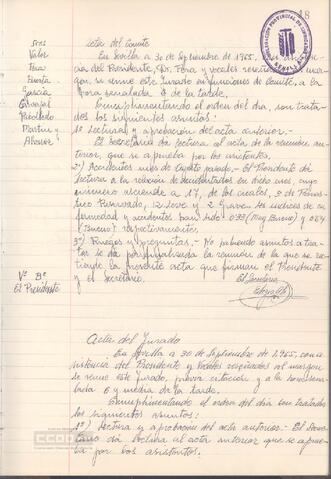 18
Sres
Valor
Fera
Huerta
García
Carvajal
Martin y
Alvarez
Acta del Comite
En Sevilla a 30 de Septiembre de 1965,
cia del Presidente, Sr. Fera y vocales reseñados al mar-
gen, se reune este Jurado en funciones de Comite, a la
hora señalada 6 de la tarde.
Cumplimentando el orden del dia, son trata-
dos los siguientes asuntos:
1º) Lectura y aprobación del acta anterior.-
El Secretario da lectura al acta de la reunion an-
terior, que es aprueba por los asistentes.
2º) Accidentes mes de Agosto pasado.- El Presidente da
lectura a la relación de accidentados en dicho mes, cuyo
número asciende a 17, de los cuales, 3 de Pronos-
tico Reservado, 12 Leve y 2 Grave. Los indices de en-
fermedad y accidentes han sido 0'93 (Muy Bueno) y
(Bueno) respectivamente.
3º) Ruegos y preguntas.- No habiendo asuntos a tra-
tar se da por finalizada la reunion de la que se ex-
tiende la presente acta que firman el Presidente
y el Secretario.
Vº Bº
El Presidente
El Secretario
Acta del Jurado
En Sevilla a 30 de Septiembre de 1965, con a-
sistencia del Presidente y Vocales reseñados al margen
se reune este Jurado, previa citación y a la hora seña-
lada 6 y media de la tarde.
Cumplimentando el orden del dia son tratados
los siguientes asuntos:
1º) Lectura y aprobación del acta anterior.- El Secre-
tario da lectura al acta anterior que se aprue-
ba por los asistentes.